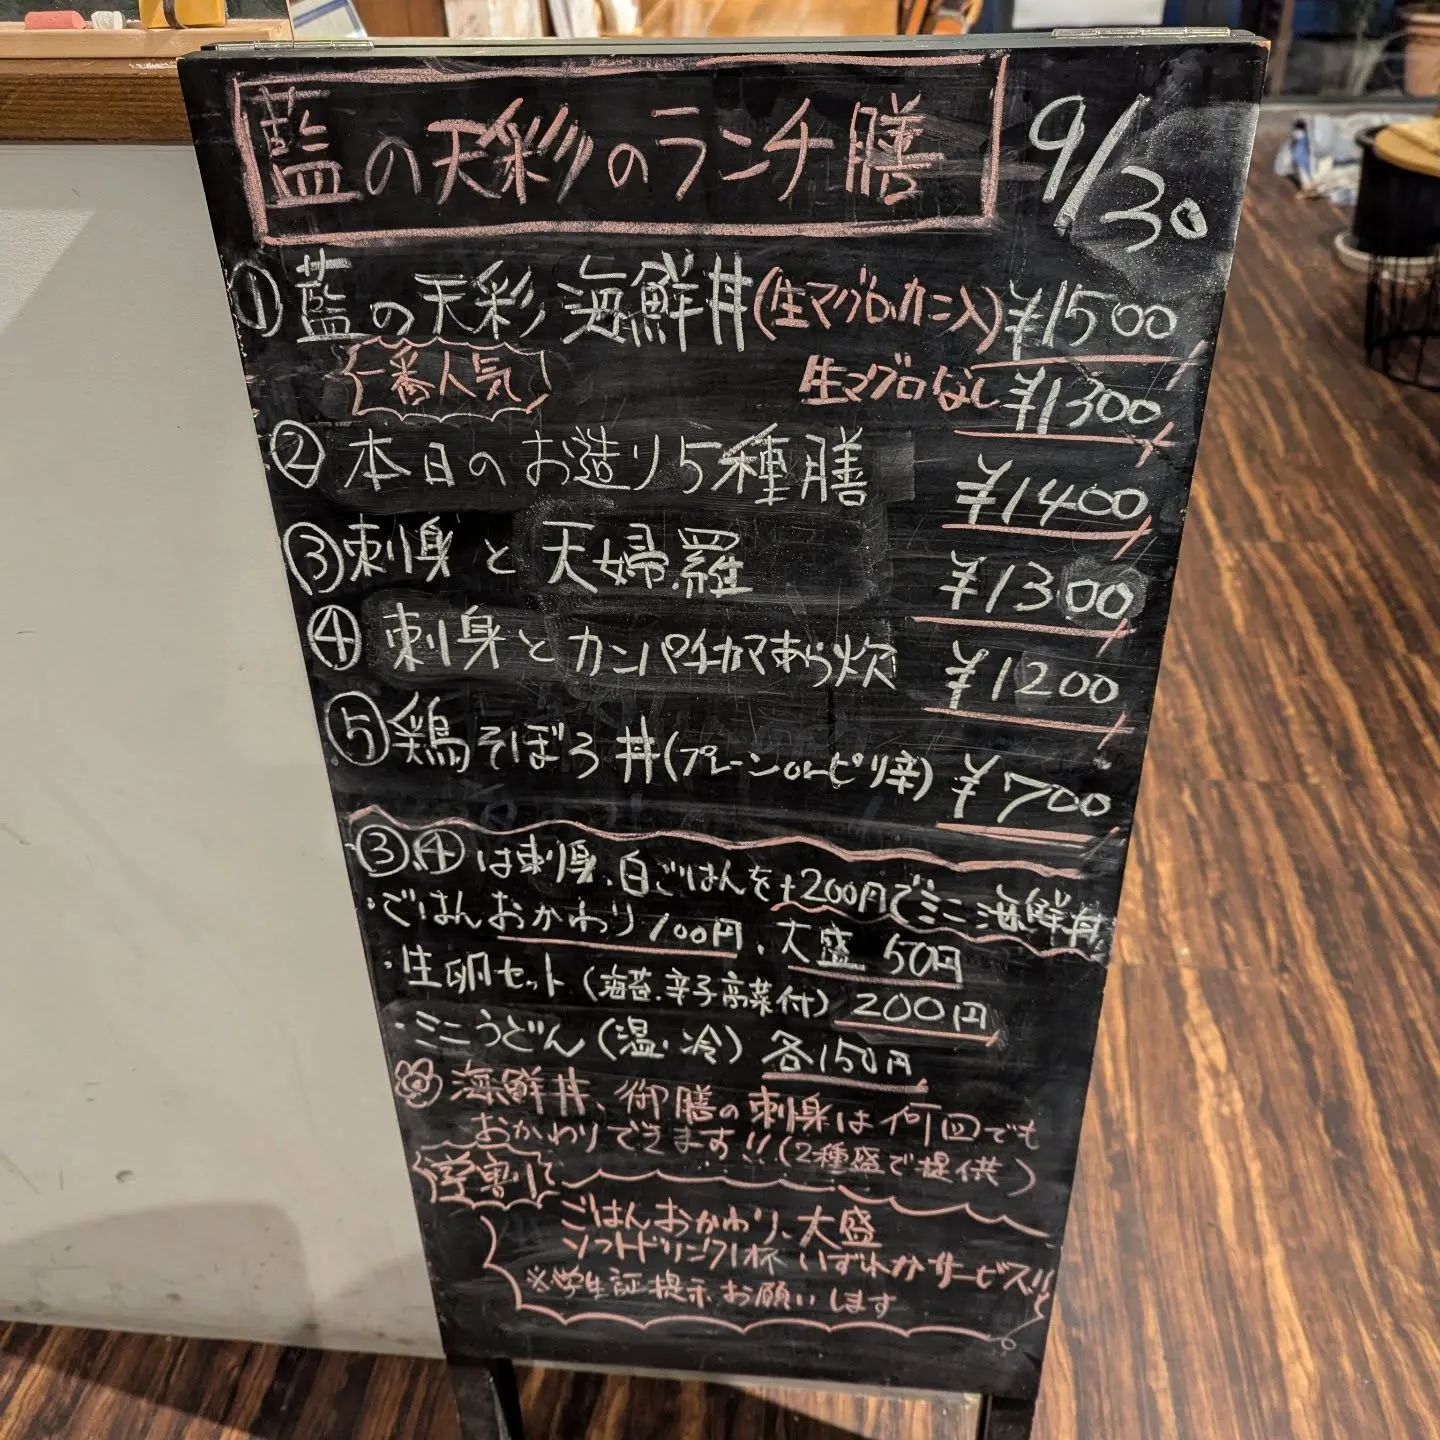 藍の天彩のランチ膳 9/30
① 藍の天彩 海鮮丼(生マグロ、カニ入) ¥1500
一番人気 生マグロなし ¥1300
② 本日のお造り5種膳 ¥1400
③ 刺身と天婦羅 ¥1300
④ 刺身とカンパチカマあら炊 ¥1200
⑤ 鶏そぼろ丼(プレーンorピリ辛) ¥700
③④は刺身、白ごはんを+200円でミニ海鮮丼
・ごはんおかわり100円、大盛 50円
・生卵セット(海苔、辛子高菜付) 200円
・ミニうどん(温・冷) 各150円
海鮮丼、御膳の刺身は何回でも
おかわりできます!!(2種盛で提供)
学割
ごはんおかわり、大盛
ソフトドリンク1杯 いずれかサービス!!
※学生証提示お願いします